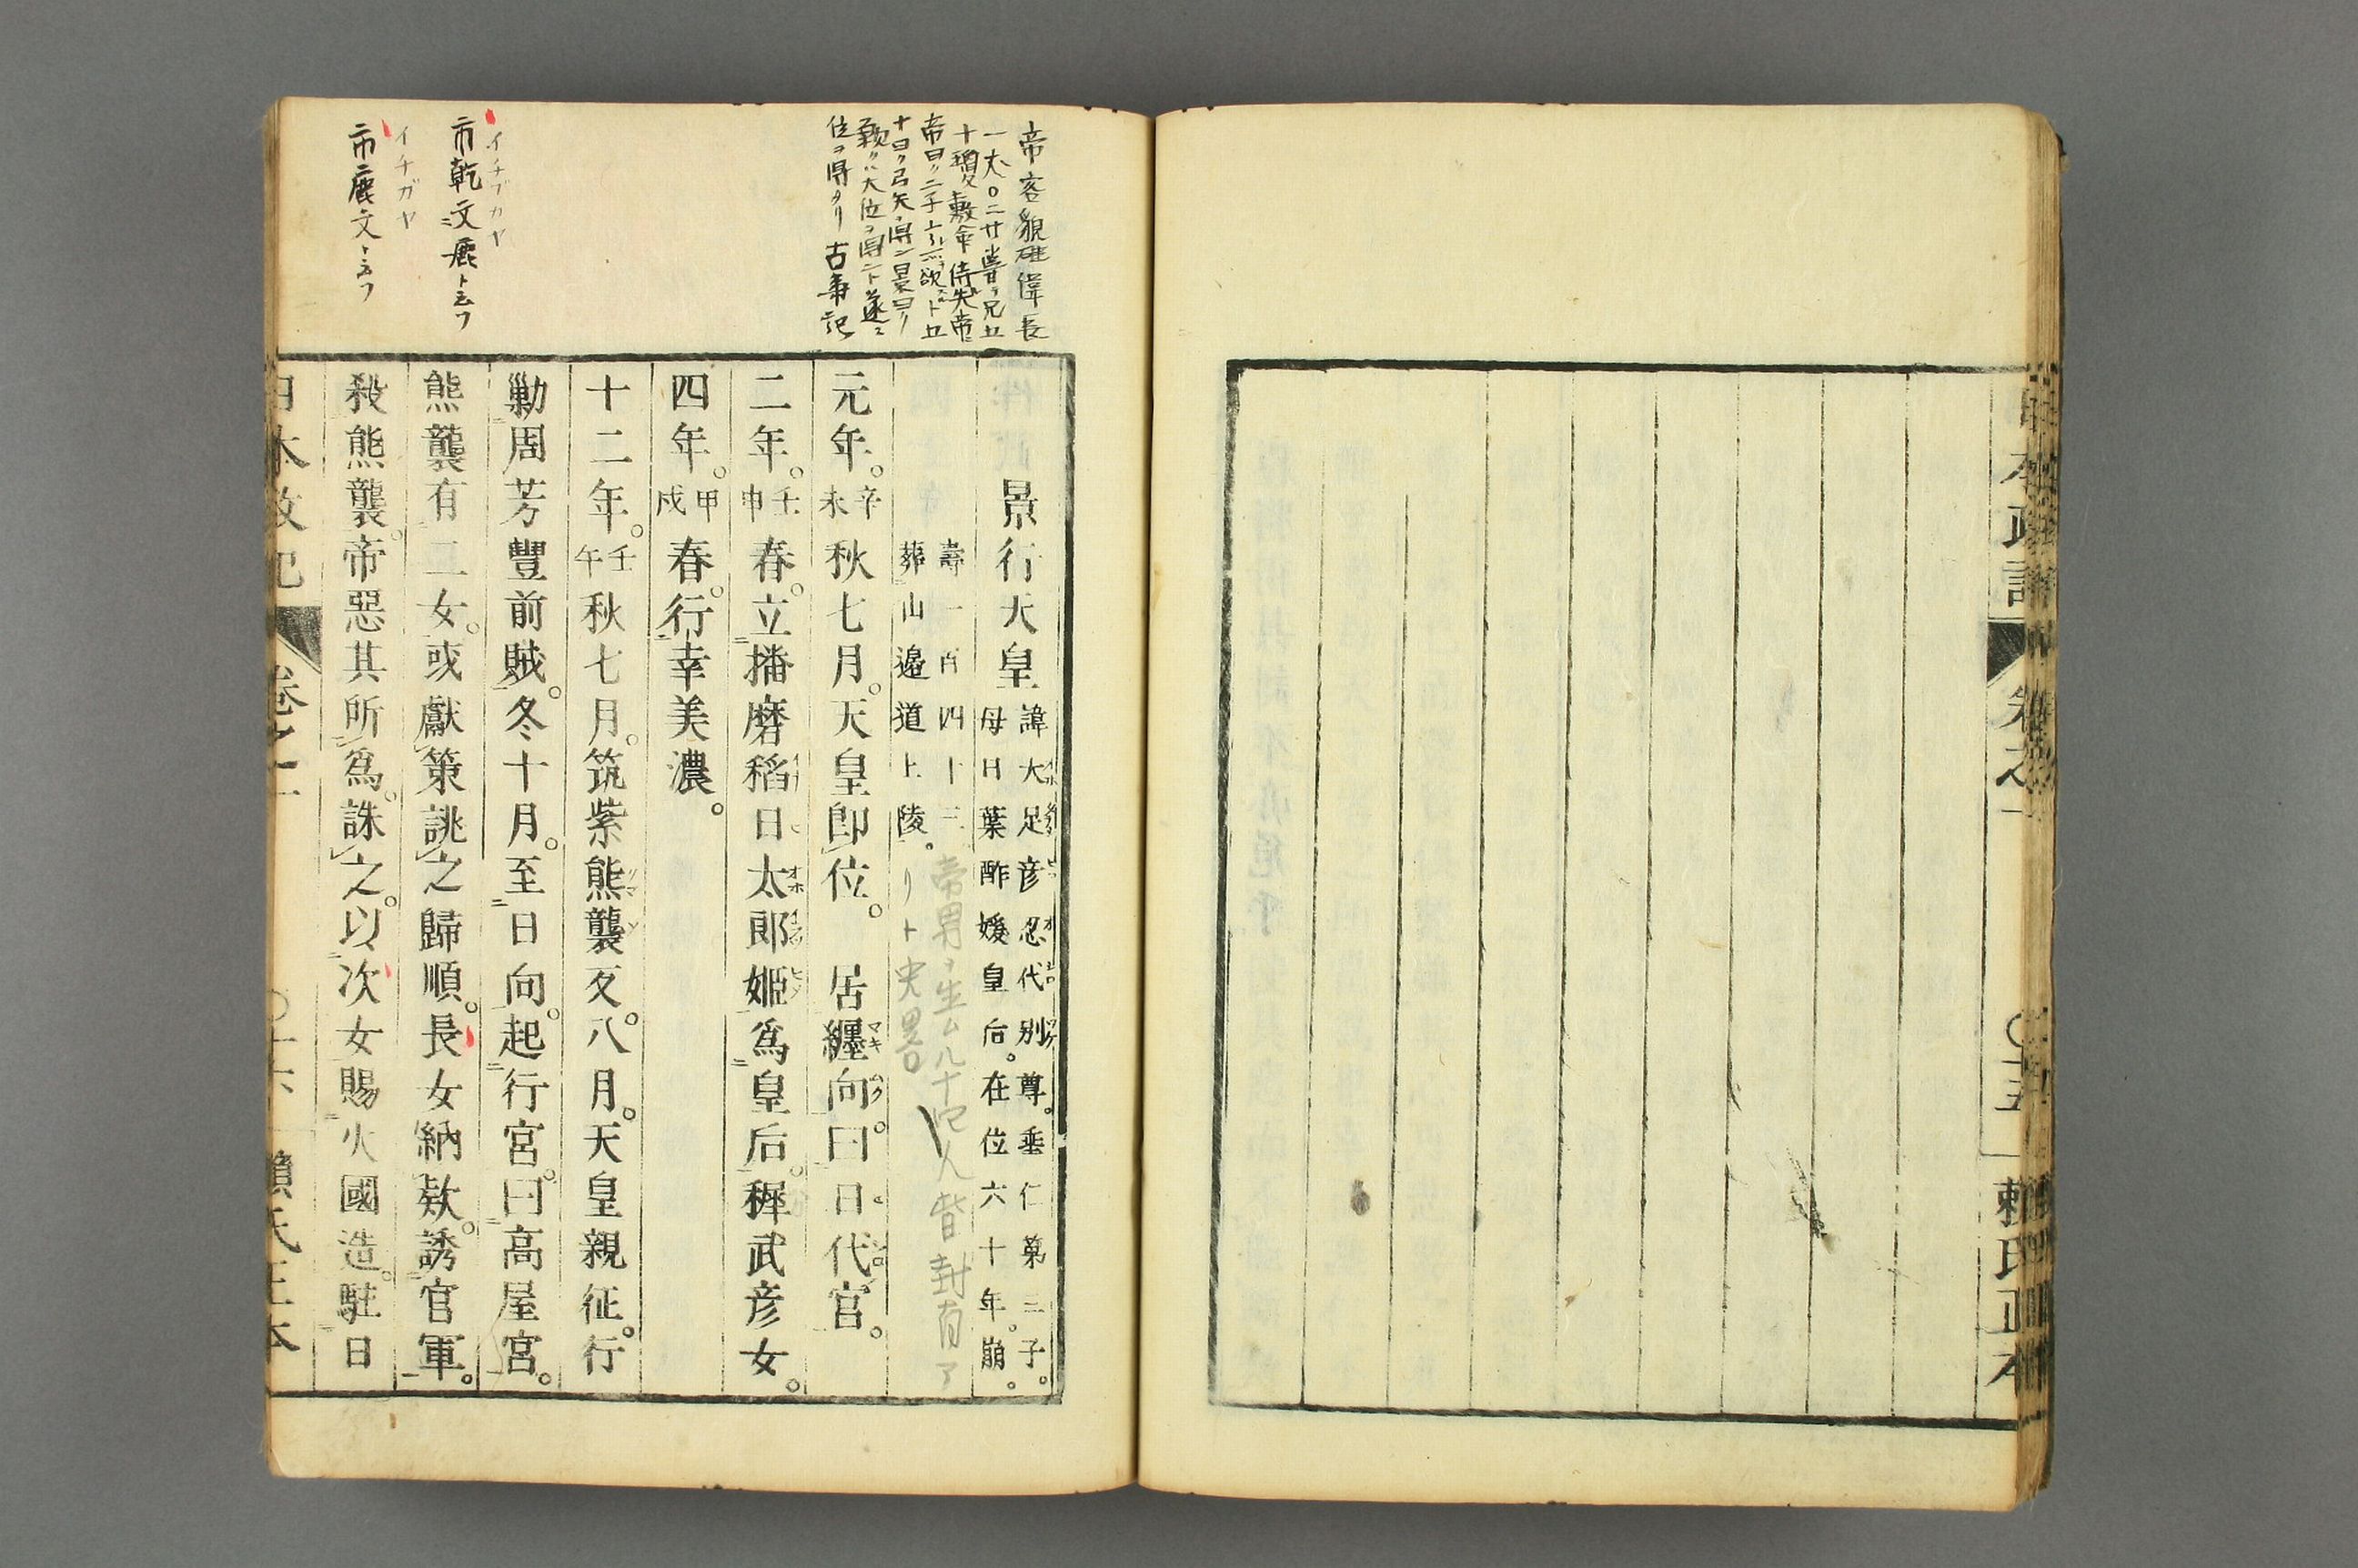 日本政記
卷之一
〇十五
賴氏正本
帝容貌雄偉長
一丈〇二
帝曰ク二子
十曰ク弓矢ヲ得ン景曰ク
願クハ大位ヲ得ント遂ニ
位ヲ得タリ 古事記
イチフカヤ
市乾文鹿ト云フ
イチガヤ
市鹿文ト云フ
景行天皇
諱大足彦忍代別尊。垂仁第三子。
母日葉酢媛皇后。在位六十年。崩。
壽一百四十三
葬山邊道上陵。
帝男ヲ生ム八十 人皆封有
元年。辛未秋七月。天皇即位。 居纏向。曰日代宮。
二年。壬申春。立播磨稻日太郎姬爲皇后。稚武彦女。
四年。甲戌春。行幸美濃。
十二年。壬午秋七月。筑紫熊襲反。八月。天皇親征。行
勦周芳豐前賊。冬十月。至日向。起行宮。曰高屋宮。
熊襲有二女。或獻策誂之歸順。長女納欵。誘官軍。
殺熊襲。帝惡其所爲。誅之。以次女賜火國造。駐日
日本政記
卷之一
〇十六
賴氏正本